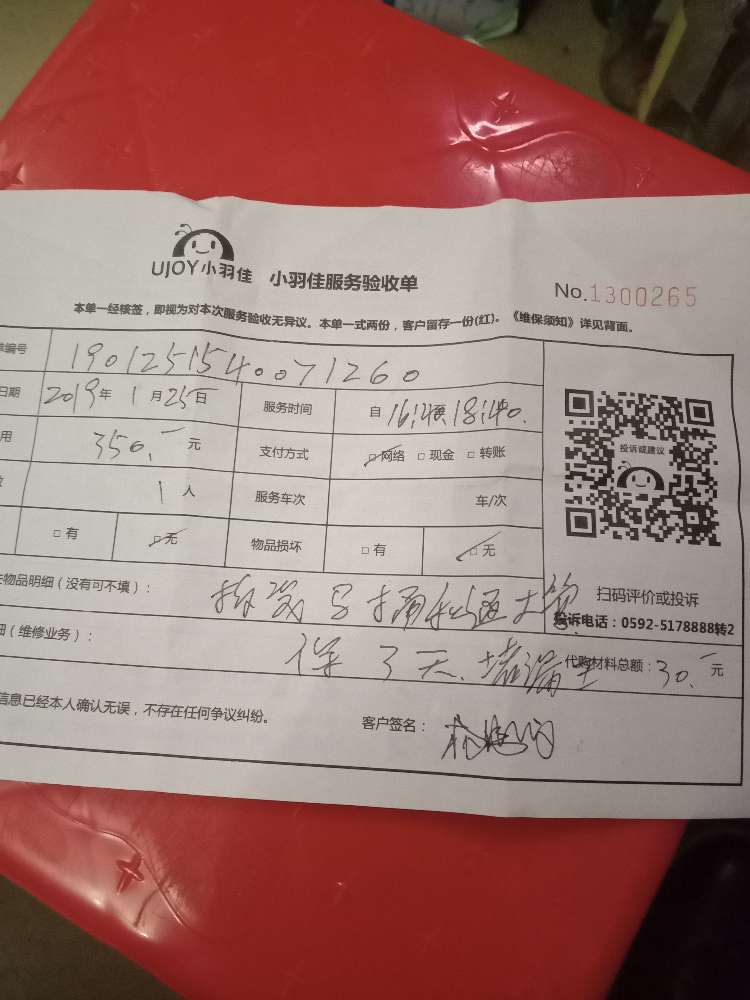 UJOY小羽佳 小羽佳服务验收单 No.1300265
本单一经核签，即视为对本次服务验收无异议。本单一式两份，客户留存一份(红)。《维保须知》详见背面。
编号 1901251540071260
日期 2019年 1月25日 服务时间 自 18:40
用 350.- 元 支付方式 ☑网络 □现金 □转账
1人 服务车次 车/次
□有 ☑无 物品损坏 □有 ☑无
投诉或建议
物品明细（没有可不填）：
扫码评价或投诉
投诉电话：0592-5178888转2
（维修业务）： 保 3天.堵漏王 代购材料总额：30.- 元
信息已经本人确认无误，不存在任何争议纠纷。 客户签名：